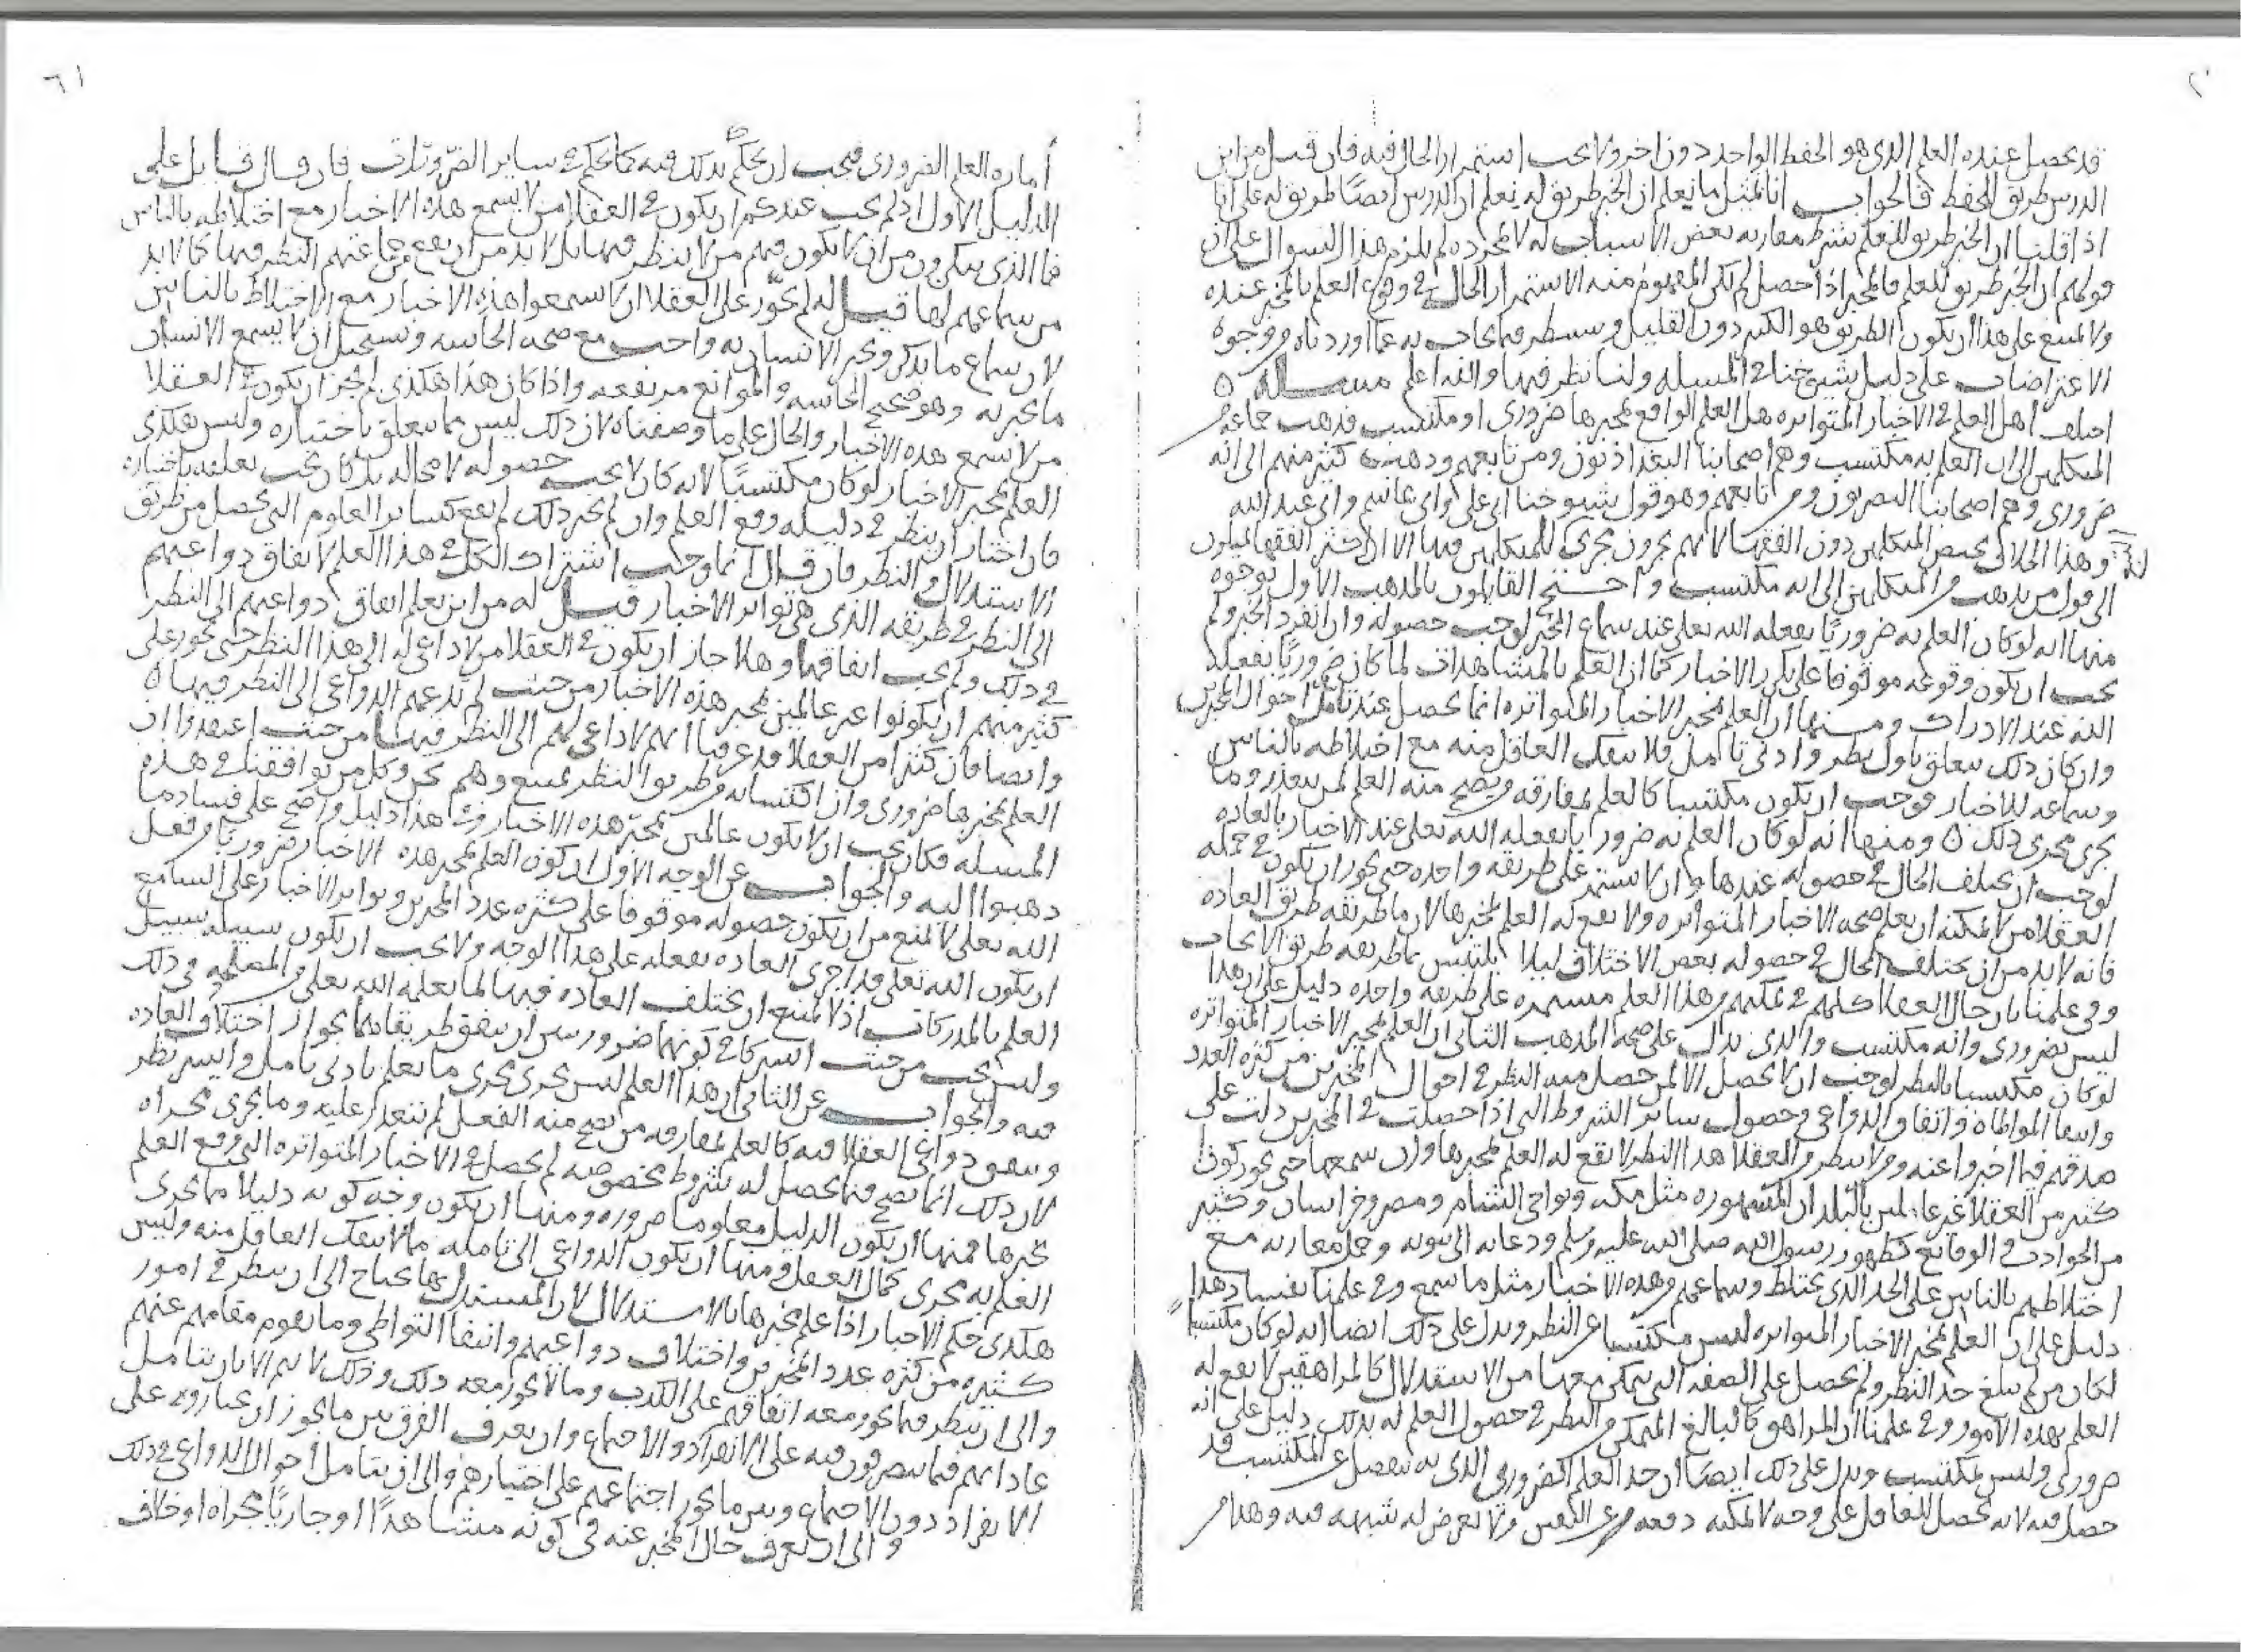 قد يحصل عنده العلم الذي هو الحفظ الواحد دون اخر ولا يجب استمرار الحال فيه فان قيل من اين
الدرس طريق للحفظ فالجواب انا نمثل ما يعلم ان الخبر طريق له يعلم ان الدرس ايضًا طريق له على انا
اذا قلنا ان الخبر طريق للعلم بشرط مقارنه بعض الاسباب له لا لمجرده لم يلزم هذا السوال على ان
قولهم ان الخبر طريق للعلم فالخبر اذا حصل لم يكن المفهوم منه الاستمرار الحال في وقوع العلم بالمخبر عنده
ولا يمتنع على هذا ان يكون الطريق هو الكثير دون القليل وسينظر فيما يجاب به عما اوردناه من وجوه
الاعتراضات على دليل شيوخنا في المسله ولنا نظر فيها والله اعلم مسله ه
اختلف اهل العلم في الاخبار المتواتره هل العلم الواقع بمخبرها ضروري او مكتسب فذهب جماعه من
المتكلمين الى ان العلم به مكتسب وهم اصحابنا البغداذيون ومن تابعهم وذهب كثير منهم الى انه
ضروري وهم اصحابنا البصريون ومن تابعهم وهو قول شيوخنا ابي علي وابي هاشم وابي عبد الله
وهذا الخلاف يخص المتكلمين دون الفقها لانهم يجرون مجرى المتكلمين فيها الا ان اكثر الفقها يميلون
الى قول من يذهب من المتكلمين الى انه مكتسب واحتج القايلون بالمذهب الاول بوجوه
منها انه لو كان العلم به ضروريًا يفعله الله تعلى عند سماع الخبر لوجب حصوله وان انفرد الخبر ولم
يجب ان يكون وقوعه موقوفا على تكرر الاخبار كما ان العلم بالمشاهدات لما كان ضروريًا يفعله
الله عند الادراك ومنها ان العلم بمخبر الاخبار المتواتره انما يحصل عند تامل احوال المخبرين
وان كان ذلك يتعلق باول نظر وادنى تامل فلا ينفك العاقل منه مع اختلاطه بالناس
وسماعه للاخبار فوجب ان يكون مكتسبا كالعلم بمفارقه من يصح منه العلم لمن يتعذر وما
يجري مجرى ذلك ه ومنها انه لو كان العلم به ضروريا يفعله الله تعلى عند الاخبار بالعاده
لوجب ان يختلف الحال في حصوله عندها وان لا يستمر على طريقه واحده حتى يجوز ان يكون في جمله
العقلا من لا يمكنه ان يعلم صحه الاخبار المتواتره ولا يقع له العلم بمخبرها لان ما طريقه طريق العاده
فانه لابد من ان يختلف الحال في حصوله بعض الاختلاف ليلا يلتبس بما طريقه طريق الايجاب
وفي علمنا بان حال العقلا كلهم في تمكنهم من هذا العلم مستمره على طريقه واحده دليل على ان هذا
ليس بضروري وانه مكتسب والذي يدل على صحه المذهب الثاني ان العلم بمخبر الاخبار المتواتره
لو كان مكتسبا بالنظر لوجب ان لا يحصل الا لمن حصل منه النظر في احوال المخبرين من كثره العدد
وانتفا المواطاه واتفاق الدواعي وحصول ساير الشروط التي اذا حصلت في المخبرين دلت على
صدقهم فيما اخبروا عنه ومن لا ينظر من العقلا هذا النظر لا يقع له العلم بمخبرها وان سمعها حتى يجوز كون
كثير من العقلا غير عالمين بالبلدان المشهوره مثل مكه ونواحي الشام ومصر وخراسان وكثير
من الحوادث في الوقايع كظهور رسول الله صلى الله عليه وسلم ودعايه الى نبوته وحمل معاربه مع
اختلاطهم بالناس على الحد الذي يختلط وسماعهم من هذه الاخبار مثل ما سمع وفي علمنا بفساد هذا
دليل على ان العلم بمخبر الاخبار المتواتره ليس مكتسبا عن النظر ويدل على ذلك ايضا انه لو كان مكتسبا
لكان من لم يبلغ حد النظر ولم يحصل على الصفه التي يتمكن معها من الاستدلال كالمراهقين لا يقع له
العلم بهذه الامور وفي علمنا ان المراهق كالبالغ المتمكن من النظر في حصول العلم له بذلك دليل على انه
ضروري وليس بمكتسب ويدل على ذلك ايضًا ان حد العلم الضروري الذي به ينفصل عن المكتسب قد
حصل فيه لانه يحصل للعاقل على وجه لا يمكنه دفعه عن النفس ولا تعرض له شبهه فيه وهذا من
٦١
أماره العلم الضروري فيجب ان يحكم بذلك فيه كما يحكم في ساير الضروريات فان قال قايل على
الدليل الاول اذ لم يجب عندكم ان يكون في العقلا من لا يسمع هذه الاخبار مع اختلاطه بالناس
فما الذي ينكرون من ان لا يكون فيهم من لا ينظر فيها بل لابد من ان يقع من جماعتهم النظر فيها كما لابد
من سماعهم لها قيل له لم يجوّز على العقلا ان لا يسمعوا هذه الاخبار مع الاختلاط بالناس
لان سماع ما يذكر ويخبر الانسان به واجب مع صحه الحاسه ويستحيل ان لا يسمع الانسان
ما يخبر به وهو صحيح الحاسه والموانع مرتفعه واذا كان هذا هكذى لم يجز ان يكون في العقلا
من لا يسمع هذه الاخبار والحال على ما وصفناه لان ذلك ليس مما يتعلق باختياره وليس هكذى
العلم بمخبر الاخبار لو كان مكتسبًا لانه كان لا يجب حصوله لا محاله بل كان يجب تعلقه باختياره
فان اختار ان ينظر في دليله وقع العلم وان لم يختر ذلك لم يقع كساير العلوم التي تحصل من طريق
الاستدلال والنظر فان قال انما وجب اشتراك الكل في هذا العلم لاتفاق دواعيهم
الى النظر في طريقه الذي هي تواتر الاخبار قيل له من اين يعلم اتفاق دواعيهم الى النظر
في ذلك ولم يجب اتفاقها وهلا جاز ان يكون في العقلا من لا داعي له الى هذا النظر حتى يجوز على
كثير منهم ان يكونوا غير عالمين بمخبر هذه الاخبار من حيث لم تدعهم الدواعي الى النظر فيها ه
وايضا فان كثيرا من العقلا قد عرفنا انهم لا داعي لهم الى النظر فيها من حيث اعتقدوا ان
العلم بمخبرها ضروري وان اكتسابه من طريق النظر يمتنع وهم نحن وكل من يوافقنا في هذه
المسله فكان يجب ان لا يكون عالمين بمخبر هذه الاخبار وفي هذا دليل واضح على فساد ما
ذهبوا اليه والجواب عن الوجه الاول ان كون العلم بمخبر هذه الاخبار ضروريًا من فعل
الله تعلى لا يمنع من ان يكون حصوله موقوفا على كثره عدد المخبرين وتواتر الاخبار على السامع
ان يكون الله تعلى قد اجرى العاده بفعله على هذا الوجه ولا يجب ان يكون سبيله سبيل
العلم بالمدركات اذ لا يمتنع ان تختلف العاده فيها لما يعلمه الله تعلى من المصلحه في ذلك
وليس يجب من حيث اشتركا في كونهما ضروريين ان يتفق طريقاهما بجواز اختلاف العاده
فيه والجواب عن الثاني ان هذا العلم ليس يجري مجرى ما يعلم بادنى تامل وايسر نظر
ويتفق دواعي العقلا فيه كالعلم بمفارقه من يصح منه الفعل لم يتعذر عليه وما يجري مجراه
لان ذلك انما يصح فيما يحصل له شروط مخصوصه لم يحصل في الاخبار المتواتره التي وقع العلم
بمخبرها فمنها ان يكون الدليل معلوما ضروره ومنها ان يكون وجه كونه دليلا مما يجري
العلم به مجرى كمال العقل ومنها ان يكون الدواعي الى تامله مما لا ينفك العاقل منه وليس
هكذى حكم الاخبار اذا علم مخبرها بالاستدلال لان المستدل بها يحتاج الى ان ينظر في امور
كثيره من كثره عدد المخبرين واختلاف دواعيهم وانتفا التواطي وما يقوم مقامهم عنهم
والى ان ينظر فيما يجوز معه اتفاقهم على الكذب وما لا يجوز معه ذلك وذلك لا يتم الا بان يتامل
عاداتهم فيما يتصرفون فيه على الانفراد والاجتماع وان يعرف الفرق بين ما يجوز ان يختاروه على
الانفراد دون الاجتماع وبين ما يجوز اجتماعهم على اختيارهم والى ان يتامل احوال الدواعي في ذلك
والى ان يعرف حال المخبر عنه في كونه مشاهدًا او جاريًا مجراه او خلاف